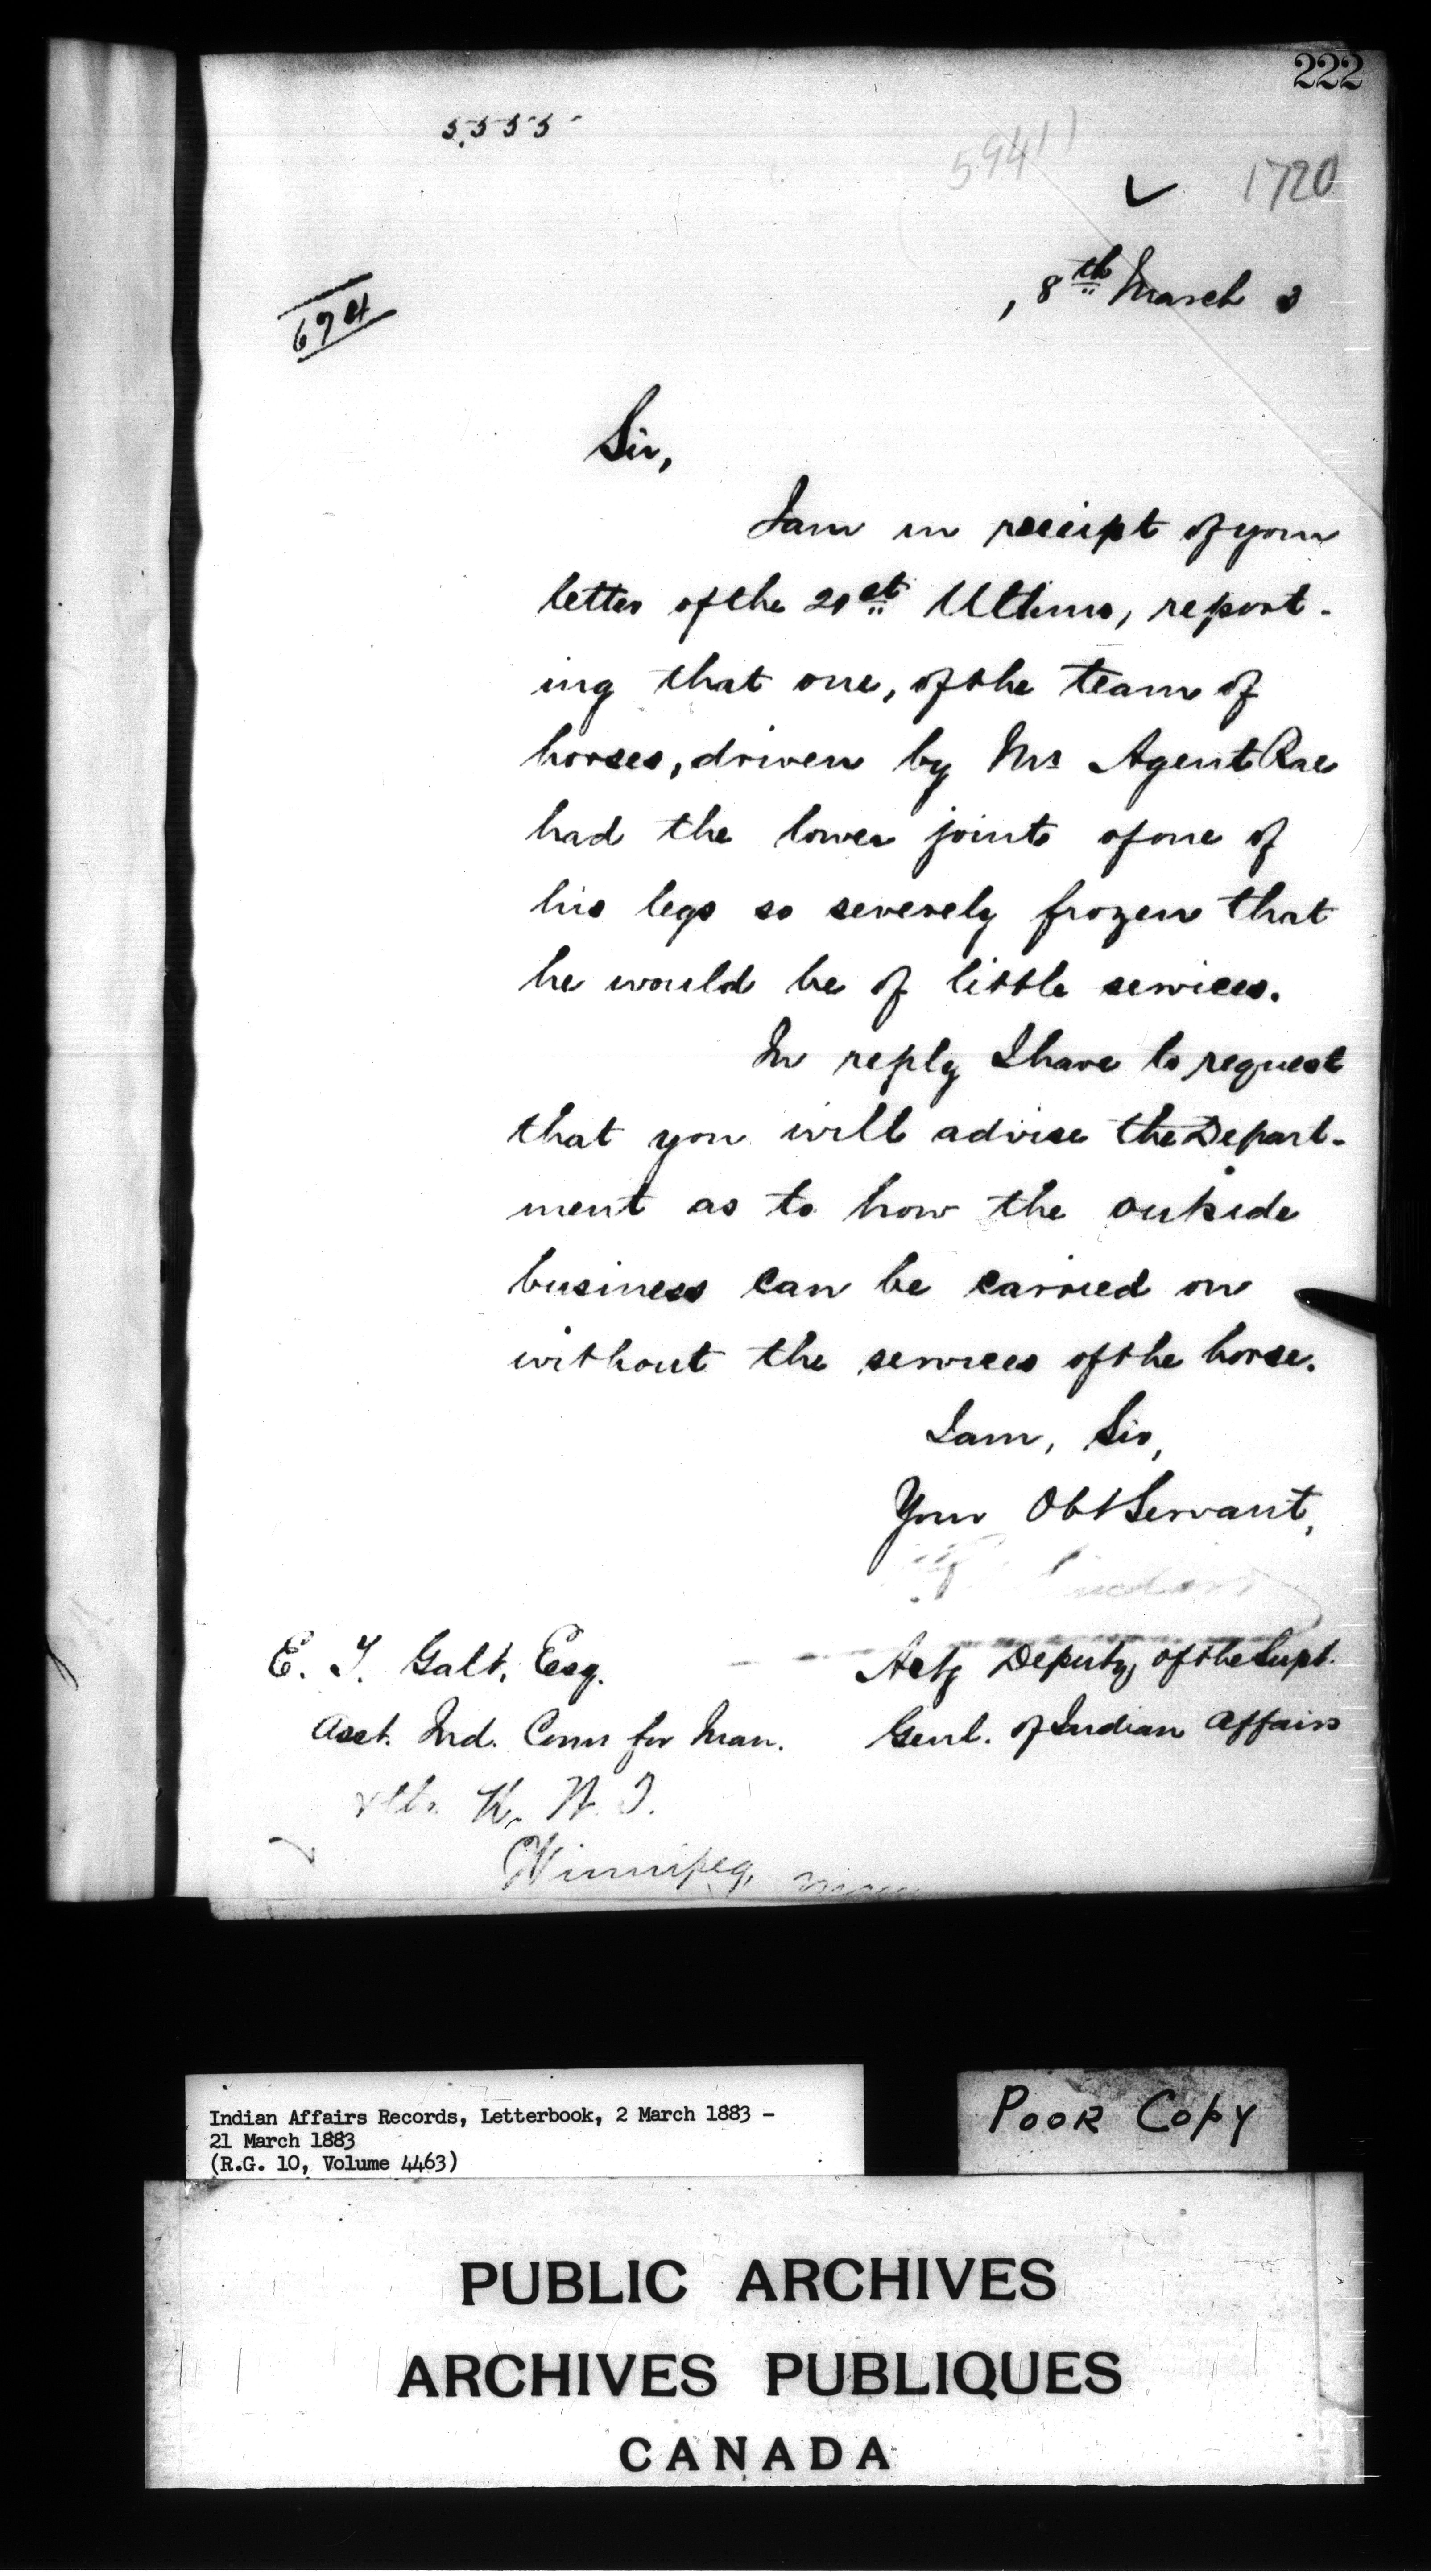 222
5555
59411
1720
, 8th March 3
674
Sir,
I am in receipt of your
letter of the 21st Ultimo, report-
ing that one, of the team of
horses, driven by Mr Agent Rae
had the lower joints of one of
his legs so severely frozen that
he would be of little services.
In reply I have to request
that you will advise the Depart-
ment as to how the outside
business can be carried on
without the services of the horse.
I am, Sir,
Your Obt Servant,
E. T. Galt, Esq.
Actg Deputy of the Supt.
Asst. Ind. Comr for Man.
Genl. of Indian Affairs
N. T.
Winnipeg,
Indian Affairs Records, Letterbook, 2 March 1883 -
21 March 1883
(R.G. 10, Volume 4463)
POOR COPY
PUBLIC ARCHIVES
ARCHIVES PUBLIQUES
CANADA